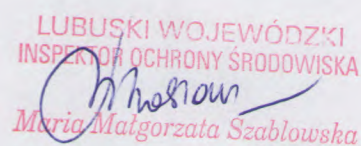 LUBUSKI WOJEWÓDZKI
INSPEKTOR OCHRONY ŚRODOWISKA
Maria Małgorzata Szablowska